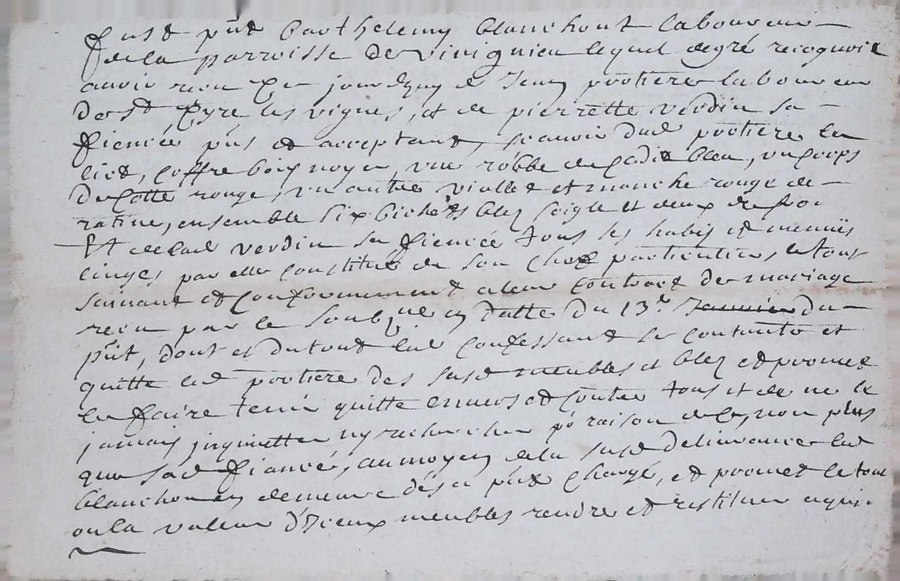 fust pñt Barthelemy blanchont laboureur
de la parroisse de lequel degré recognoit
avoir receu ce jourdhuy de Jean protiere laboureur
de St Cyre les vignes, et de pierrette verdin sa
fiencée pñs et acceptant, scavoir dud protiere un
lict, coffre bois noyer, une robbe de cadit bleu, un corps
de cotte rouge, un autre viollet et manche rouge de
ratine, ensemble six bichets bled seigle et deux de
Et de lad verdin sa fiencée tous ses habis et menus
linges par elle constitué de son chef particulier, le tout
suivant et conformement a leur contract de mariage
receu par le soubsgné en datte du 13e Janvier du
pñt, dont et du tout led confessant se contente et
quitte led protiere des susd meubles et bled et promet
en faire tenir quitte envers et contre tous et de ne le
jamais inquietter ny rechercher pr raison de ce, non plus
que sad fiancée, au moyen de la susd delivrance led
blanchon en demeure dès a pñt chargé, et promet le tout
ou la valeur d'iceux meubles rendre et restituer a qui